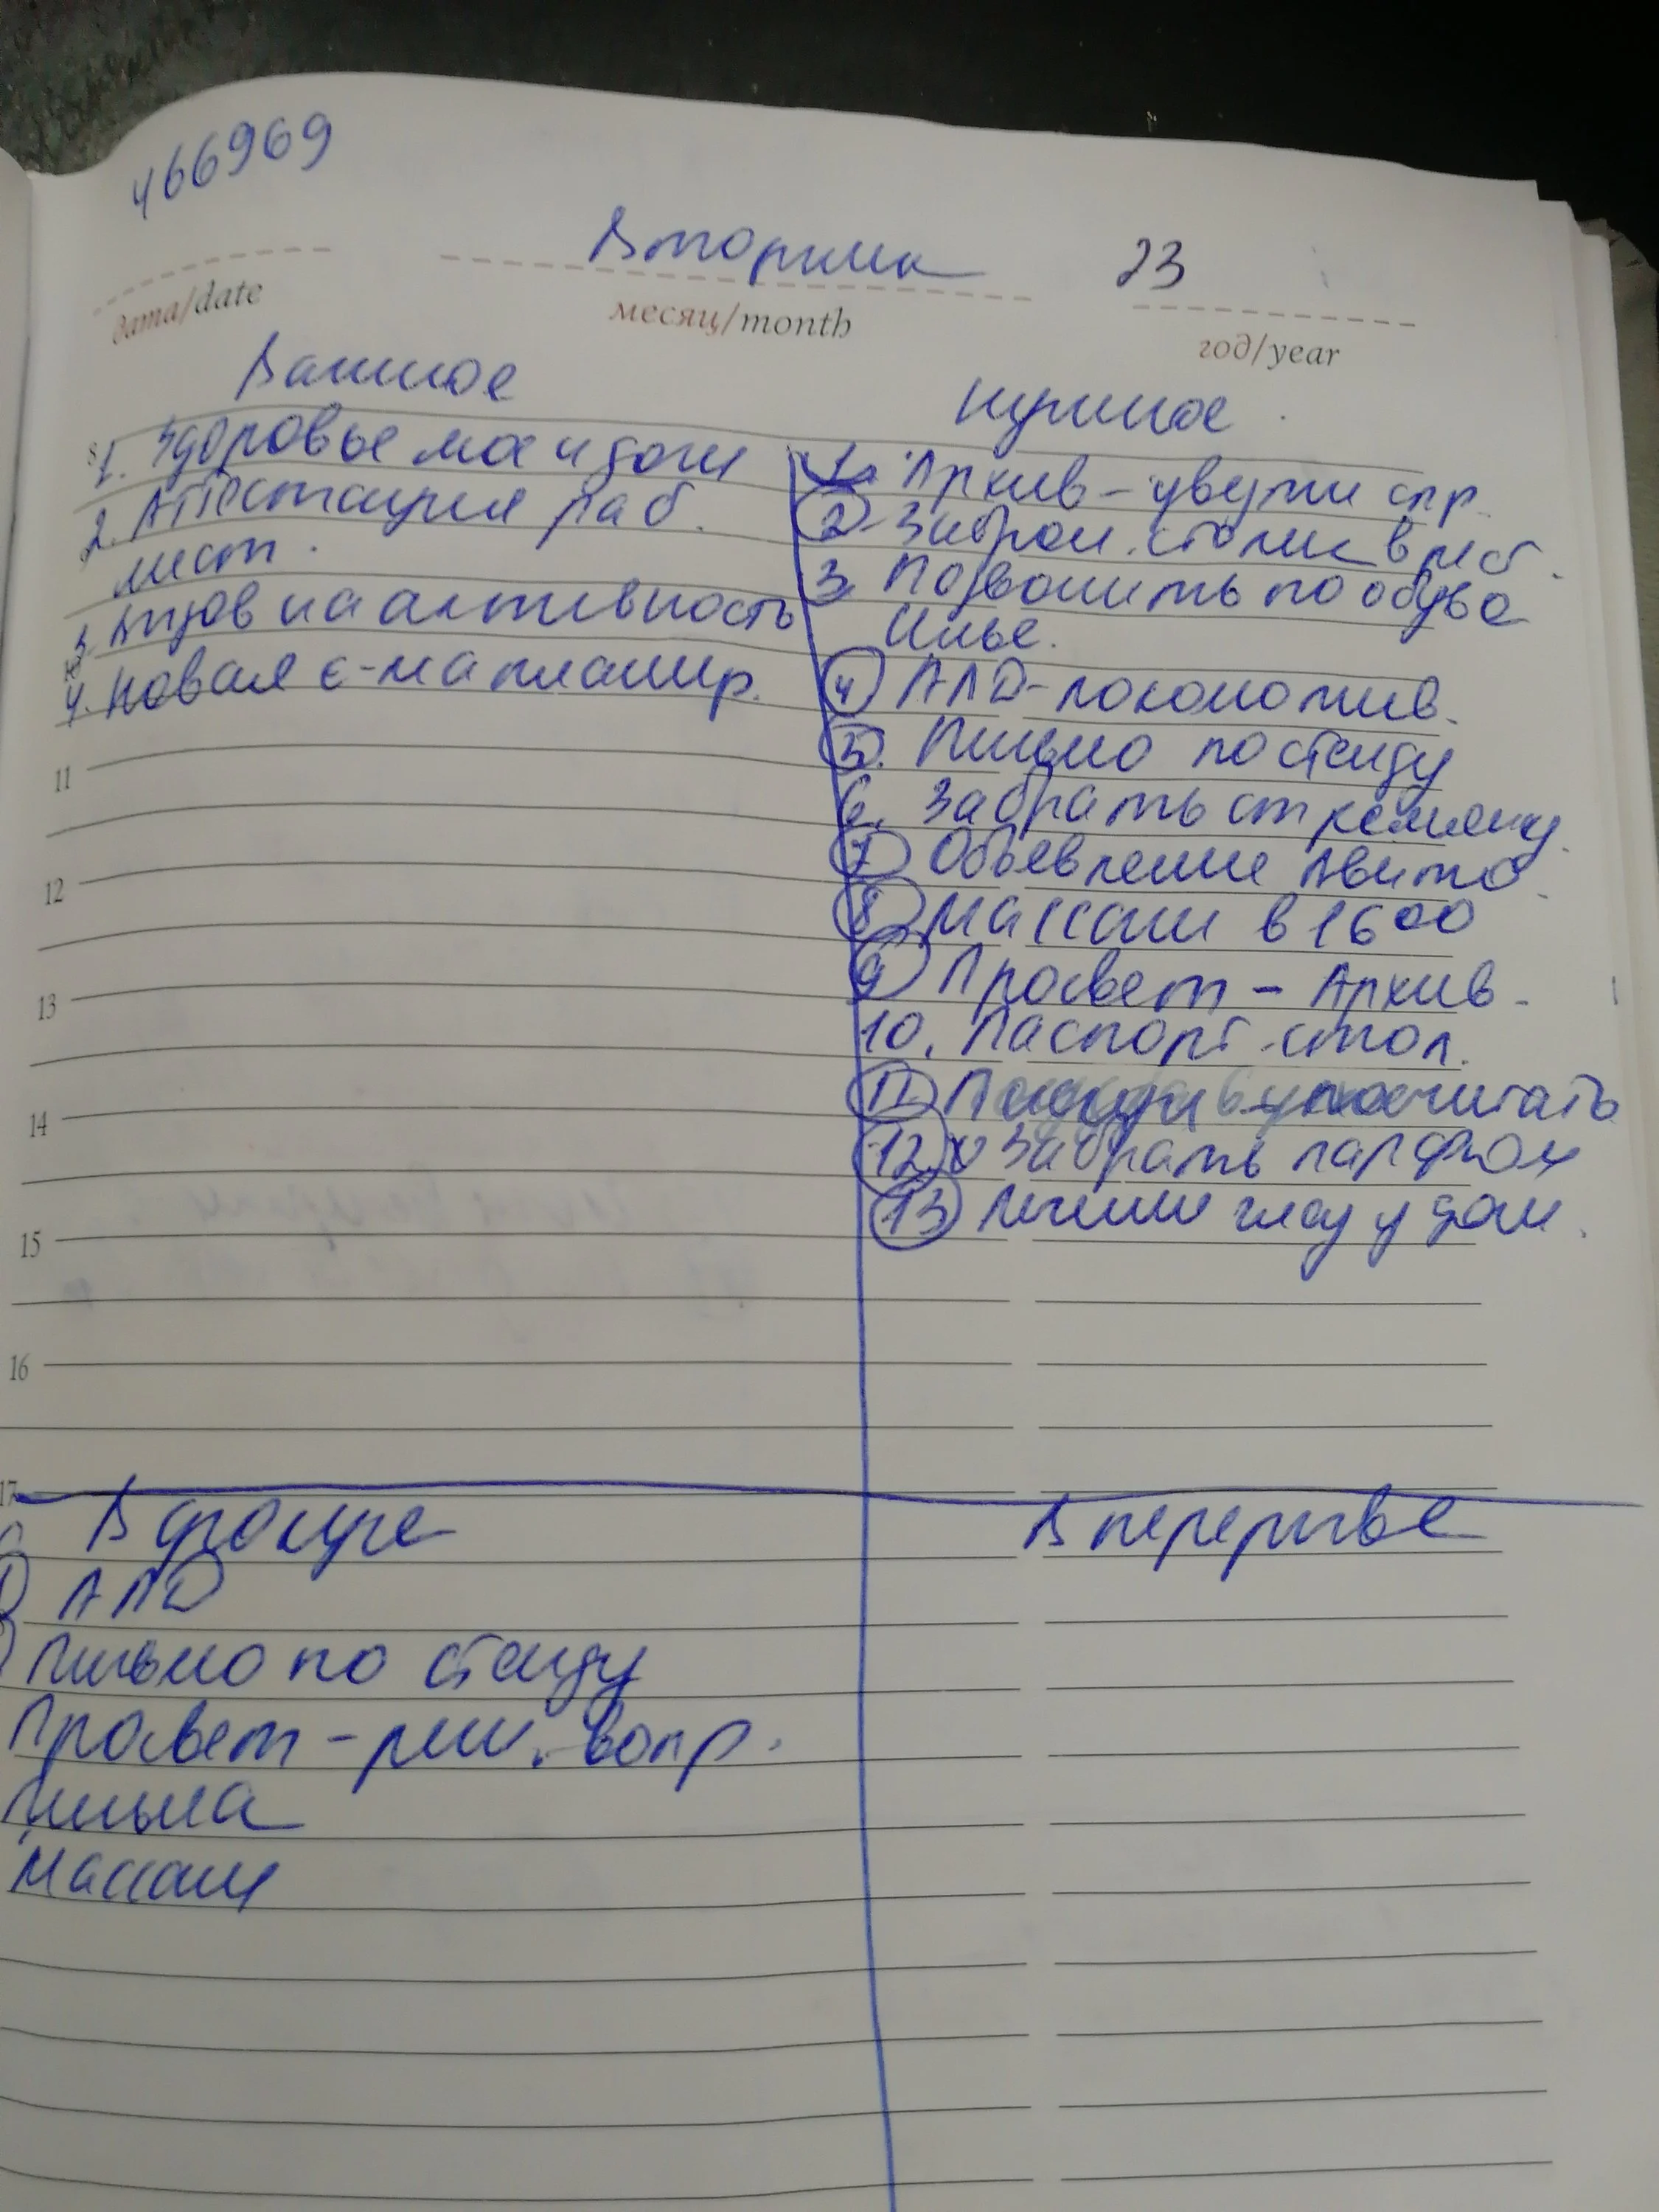 466969
Вторник 23
дата/date
месяц/month
год/year
Важное
1. Здоровье мое и дочи
2. Аттестация раб.
мест.
3. на активность
4. Новая с-ма планир.
Нужное
1. Архив - увужи спр.
2. Заброн. столик в
3. Позвонить по обуве
Илье.
4 АЛД - локомотив.
5. Письмо по стенду
6. Забрать стремянку.
7 Объевление Авито.
8 Массаж в 16 00
9 Просвет - Архив.
10. Паспорт. стол.
11 посчитать
12. Забрать парфюм
13 у дочи.
8
10
11
12
13
14
15
16
17
В фокусе
АЛД
Письмо по стенду
Просвет - реш. вопр.
Письма
Массаж
В перерыве